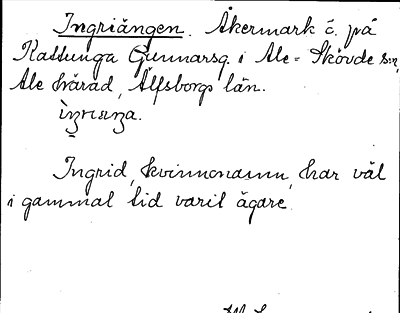 Ingriängen. Åkermark å på
Kattunga Gunnarsg. i Ale-Skövde s:n,
Ale härad, Älfsborgs län.
Ingrid, kvinnonamn, har väl
i gammal tid varit ägare.